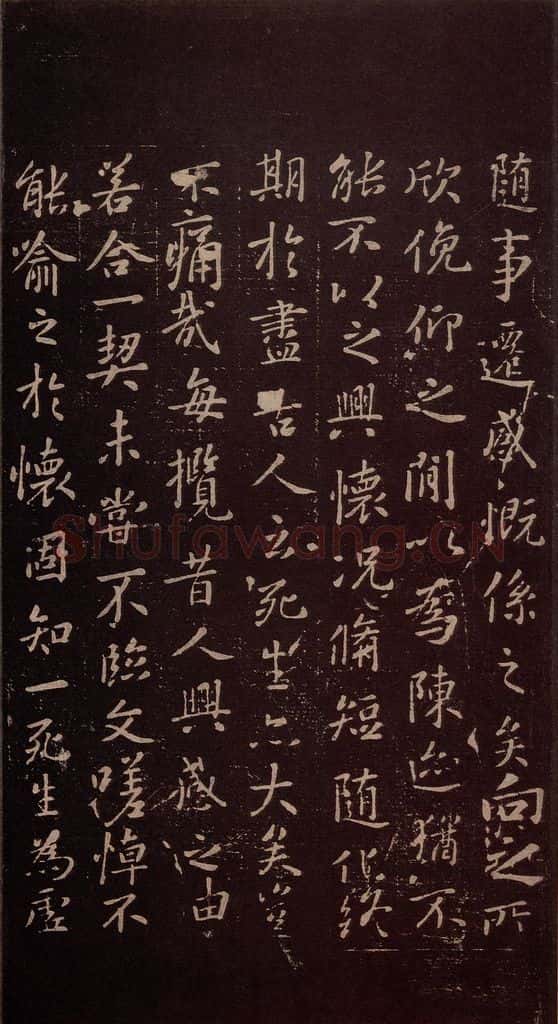 隨事遷感慨係之矣向之所
欣俛仰之閒以為陳迹猶不
能不以之興懷況脩短隨化終
期於盡古人云死生亦大矣豈
不痛哉每攬昔人興感之由
若合一契未嘗不臨文嗟悼不
能喻之於懷固知一死生為虛
Shufawang.CN